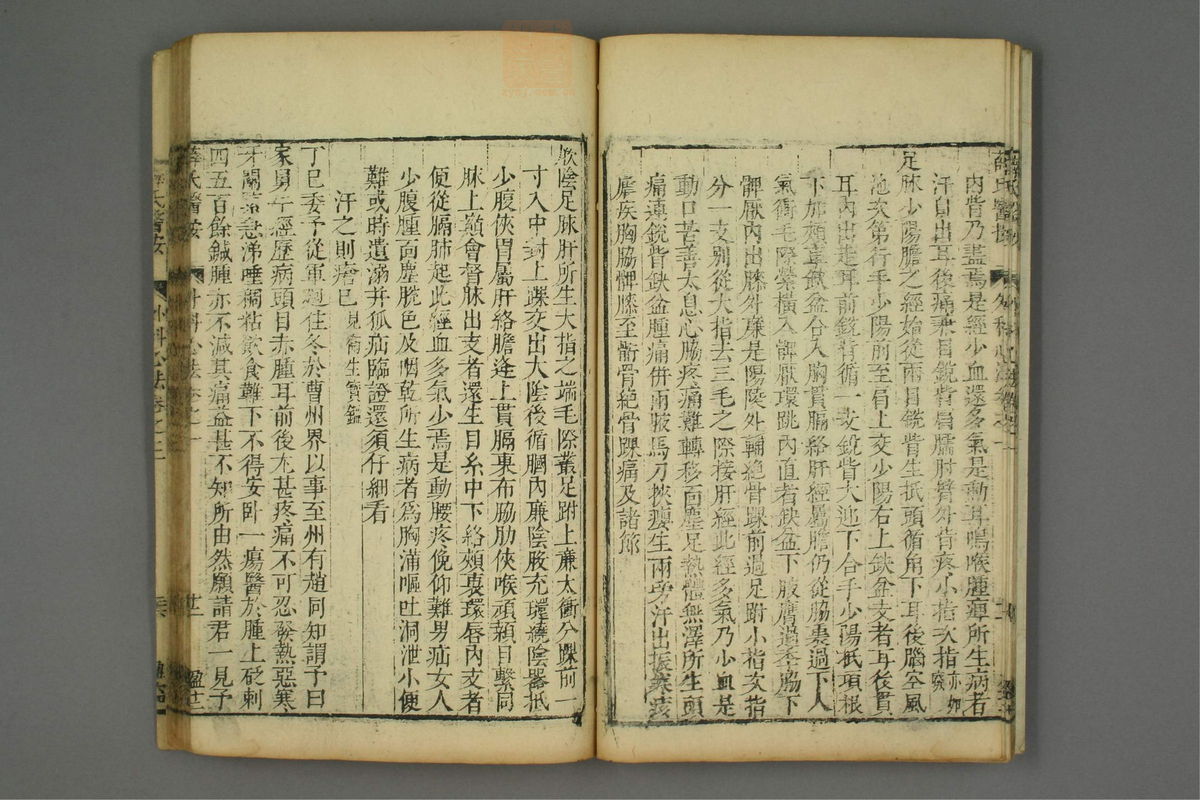 內眥乃盡焉是經少血還多氣是動耳鳴喉腫痺所生病者
汗自出耳後痛兼目銳眥肩臑肘臂外背疼小指次指亦如廢
足脉少陽膽之經始從兩目銳眥生抵頭循角下耳後腦空風
池次第行手少陽前至肩上交少陽右上缺盆支者耳後貫
耳內出走耳前銳眥循一支銳眥大迎下合手少陽抵項根
下加頰車缺盆合入胸貫膈絡肝經屬膽仍從脇裏過下入
氣衝毛際縈橫入髀厭環跳內直者缺盆下腋膺過季脇下
髀厭內出膝外廉是陽陵外輔絕骨踝前過足跗小指次指
分一支別從大指去三毛之際接肝經此經多氣乃少血是
動口苦善太息心脇疼痛難轉移面塵足熱體無澤所生頭
痛連銳眥缺盆腫痛併兩腋馬刀挾癭生兩旁汗出振寒痎
瘧疾胸脇髀膝至䯒骨絕骨踝痛及諸節
厥陰足脉肝所生大指之端毛際叢足跗上廉太衝分踝前一
寸入中封上踝交出太陰後循膕內廉陰股充環繞陰器抵
少腹俠胃屬肝絡膽逢上貫膈裏布脇肋俠喉頏顙目繫同
脉上巔會督脉出支者還生目系中下絡頰裏環唇內支者
便從膈肺起此經血多氣少焉是動腰疼俛仰難男疝女人
少腹腫面塵脫色及咽乾所生病者爲胸滿嘔吐洞泄小便
難或時遺溺并狐疝臨證還須仔細看
汗之則瘡已見衛生寶鑑
丁巳委予從軍過住冬於曹州界以事至州有趙同知謂予曰
家舅牙經歷病頭目赤腫耳前後尤甚疼痛不可忍發熱惡寒
牙關緊急涕唾稠粘飲食難下不得安臥一瘍醫於腫上砭剌
四五百餘鍼腫亦不減其痛益甚不知所由然願請君一見予
薛氏醫按
外科心法卷之二